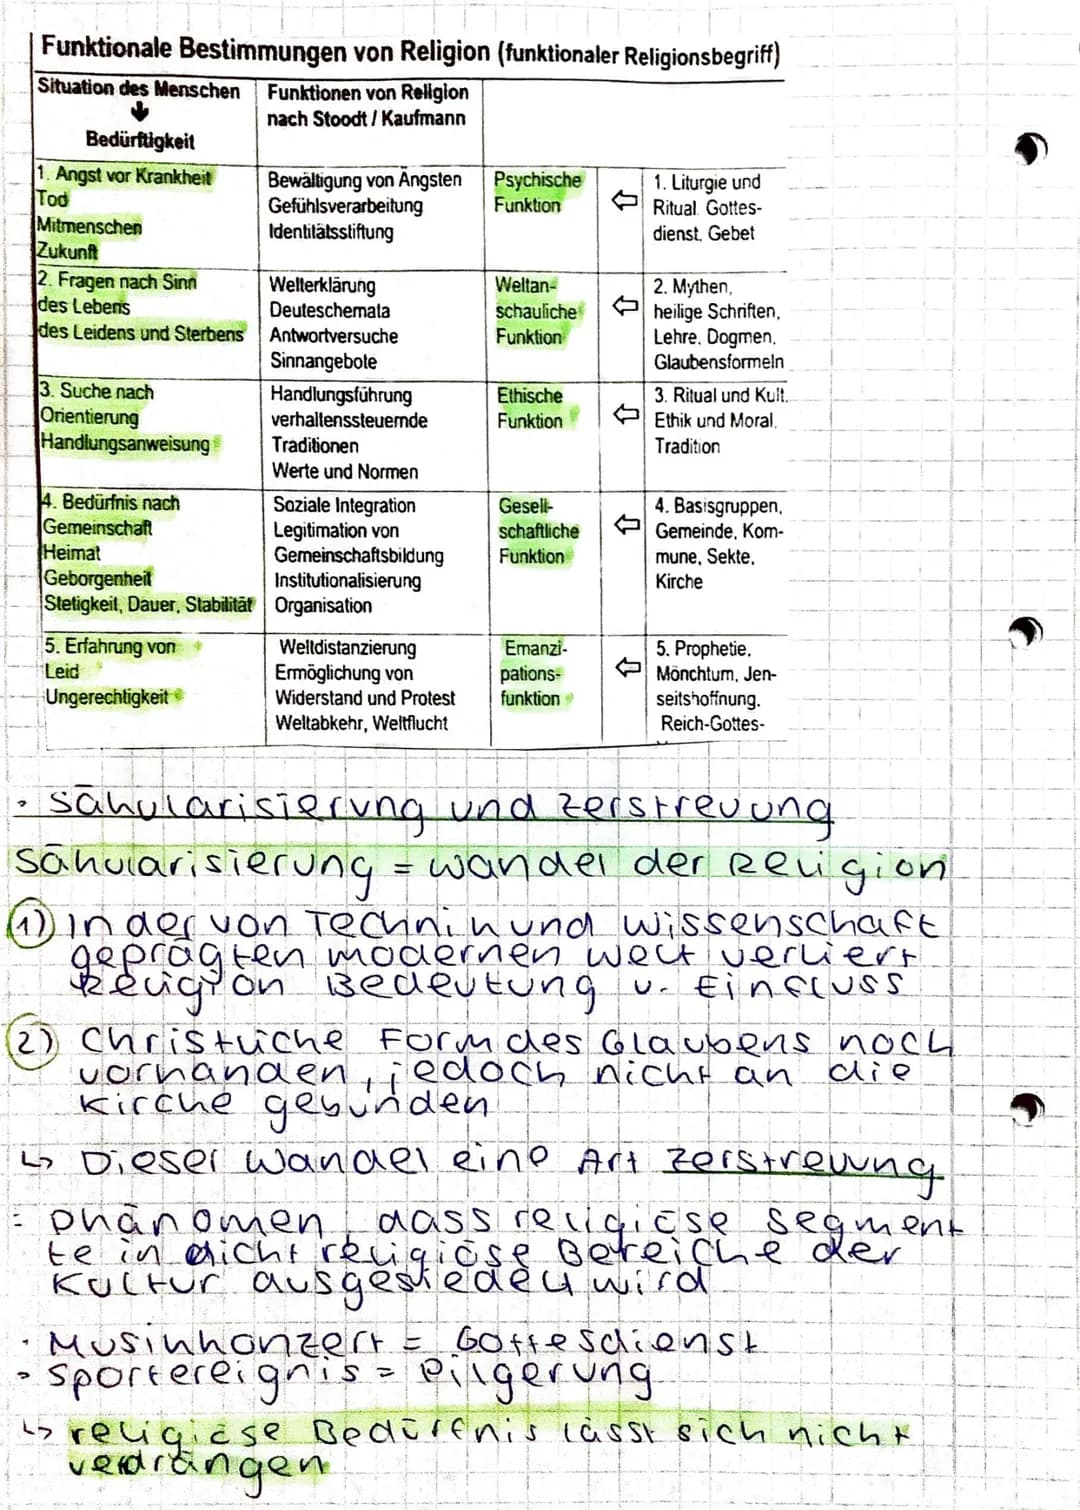 Funktionale Bestimmungen von Religion (funktionaler Religionsbegriff)
Situation des Menschen
Bedürftigkeit
Funktionen von Religion
nach Stoodt / Kaufmann
1. Angst vor Krankheit
Tod
Mitmenschen
Zukunft
Bewältigung von Ängsten
Gefühlsverarbeitung
Identitätsstiftung
Psychische
Funktion
1. Liturgie und
Ritual Gottes-
dienst, Gebet
2. Fragen nach Sinn
des Lebens
des Leidens und Sterbens
Welterklärung
Deuteschemata
Antwortversuche
Sinnangebote
Weltan-
schauliche
Funktion
2. Mythen,
heilige Schriften,
Lehre, Dogmen,
Glaubensformeln
3. Suche nach
Orientierung
Handlungsanweisung
Handlungsführung
verhaltenssteuernde
Traditionen
Werte und Normen
Ethische
Funktion
3. Ritual und Kult,
Ethik und Moral,
Tradition
4. Bedürfnis nach
Gemeinschaft
Heimat
Geborgenheit
Stetigkeit, Dauer, Stabilität
Soziale Integration
Legitimation von
Gemeinschaftsbildung
Institutionalisierung
Organisation
Gesell-
schaftliche
Funktion
4. Basisgruppen,
Gemeinde, Kom-
mune, Sekte,
Kirche
5. Erfahrung von
Leid
Ungerechtigkeit
Weltdistanzierung
Ermöglichung von
Widerstand und Protest
Weltabkehr, Weltflucht
Emanzi-
pations-
funktion
5. Prophetie,
Mönchtum, Jen-
seitshoffnung,
Reich-Gottes-
• Säkularisierung und Zerstreuung
Säkularisierung = Wandel der Religion
1) In der von Technik und Wissenschaft
geprägten modernen Welt verliert
Religion Bedeutung u. Einfluss
2) Christliche Form des Glaubens noch
vorhanden, jedoch nicht an die
Kirche gebunden
↳ Dieser Wandel eine Art Zerstreuung
= Phänomen, dass religiöse Segment
te in nicht religiöse Bereiche der
Kultur ausgesiedelt wird
• Musikkonzert = Gottesdienst
• Sportereignis = Pilgerung
↳ religiöse Bedürfnis lässt sich nicht
verdrängen